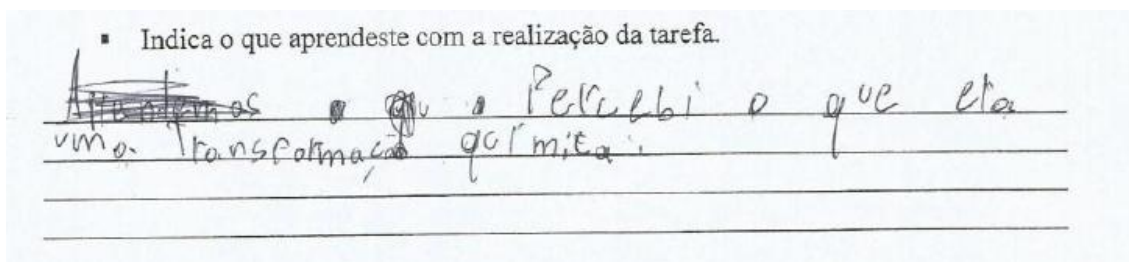 ▪ Indica o que aprendeste com a realização da tarefa.
Percebi o que era
uma Transformação qürmica.